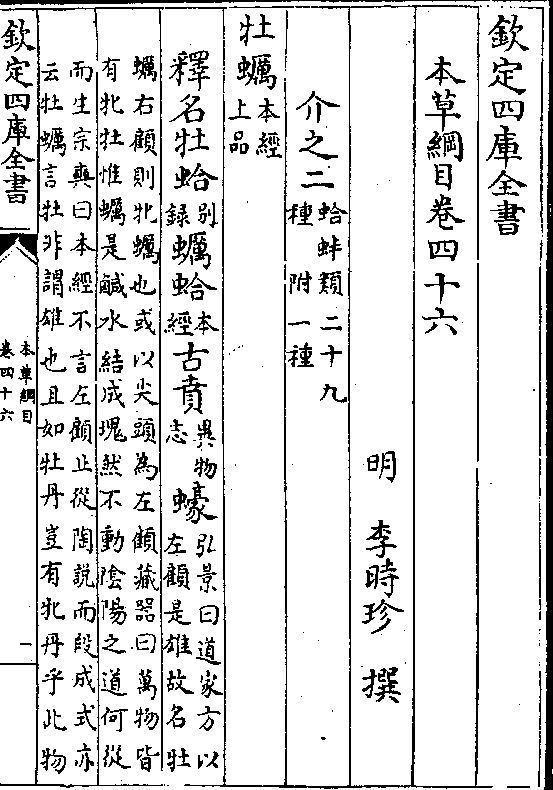 欽定四庫全書
本草綱目卷四十六
明 李時珍 撰
介之二 蛤蚌類二十九種附一種
牡蠣本經上品
釋名牡蛤別錄蠣蛤本經古賁異物志蠔𢎞景曰道家方以
左顧是雄故名牡
蠣右顧則牝蠣也或以尖頭為左顧藏器曰萬物皆
有牝牡惟蠣是鹹水結成塊然不動隂陽之道何從
而生宗奭曰本經不言左顧止從陶說而段成式亦
云牡蠣言牡非謂雄也且如牡丹豈有牝丹乎此物
欽定四庫全書
本草綱目
卷四十六
一